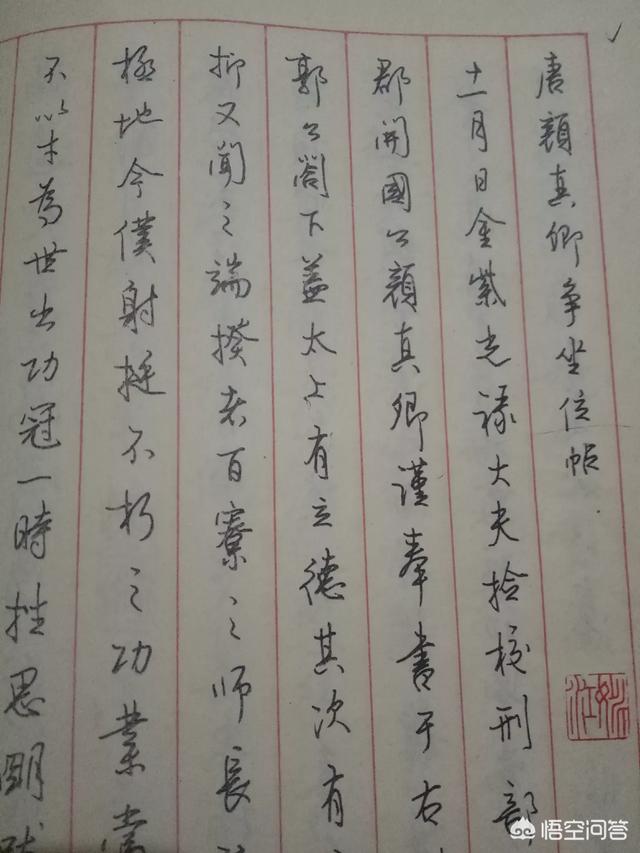 唐顔真卿争坐位帖
十一月日金紫光禄大夫捡校刑部
郡開國公顔真卿謹奉書于右
郭公閤下盖太上有立德其次有
抑又聞之端揆者百寮之师長
極地今僕射挺不朽之功業當
不以才為世出功冠一時挫思明
悟空问答